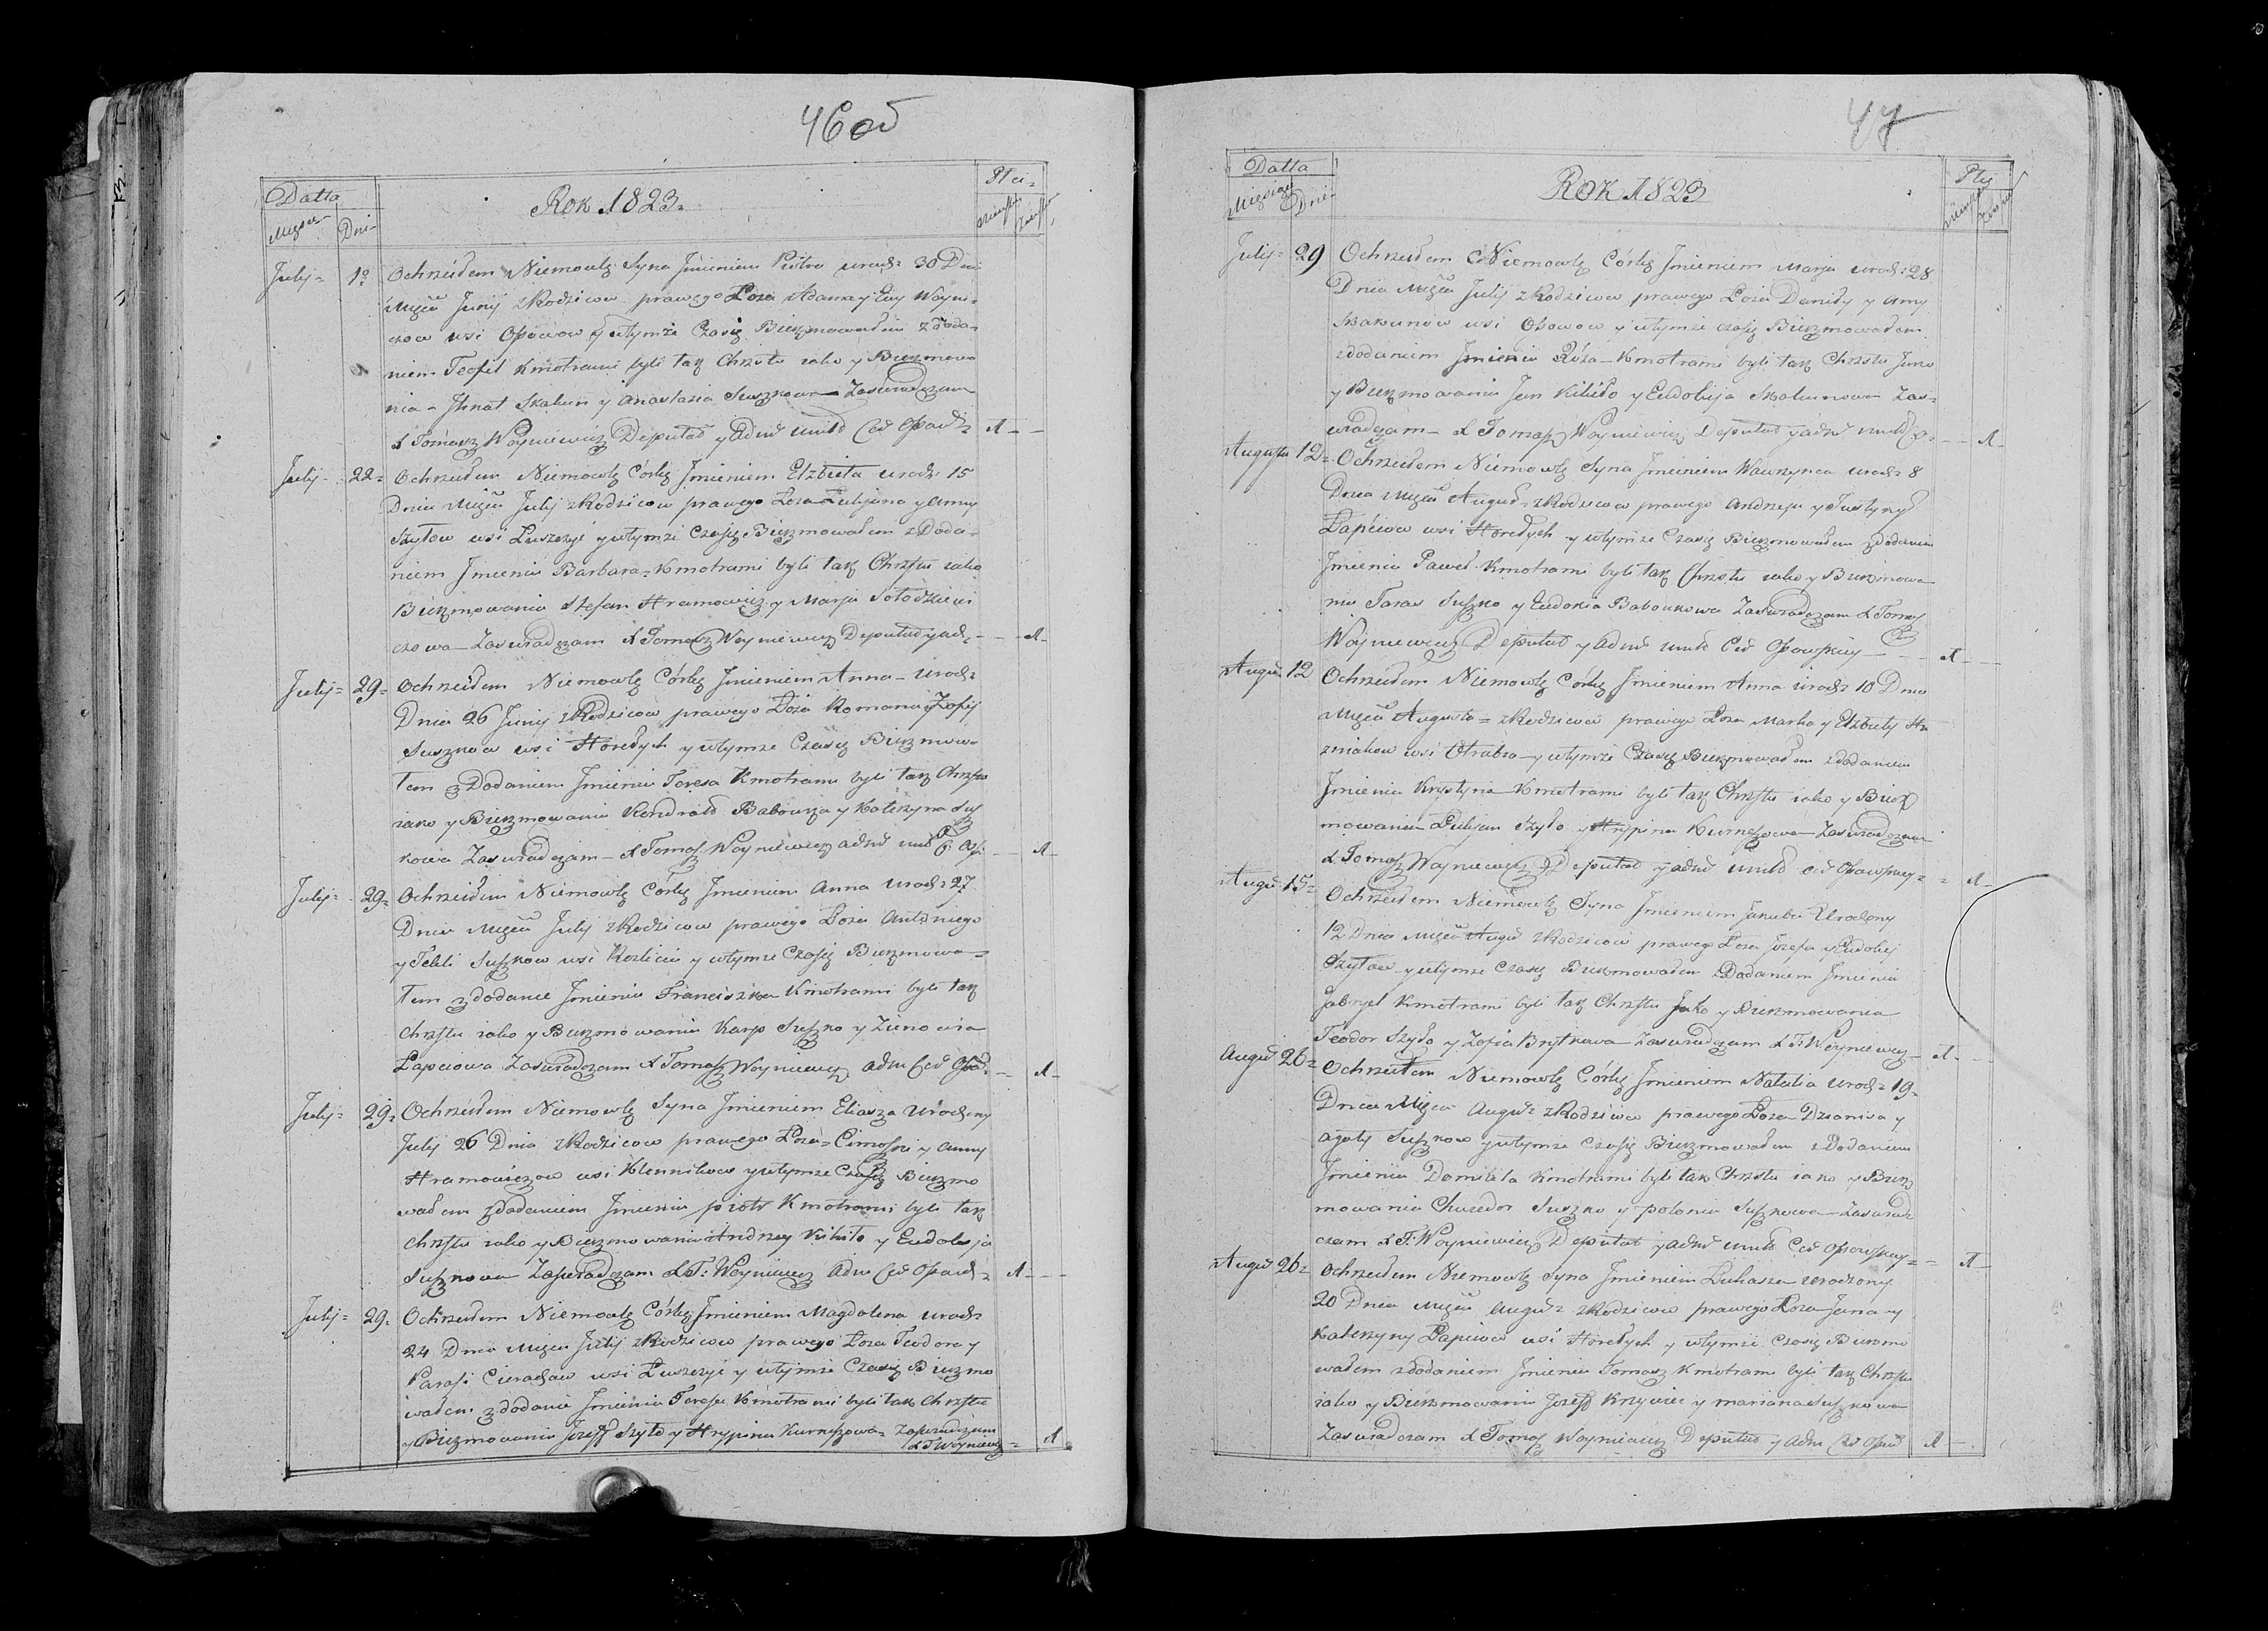 46об
Datta
Rok 1823
Płci
Miesiąc Dni
July 1 Ochrzciłem Niemowlę Syna Jmieniem Piotra urodz: 30 Dni
Mięca Junij z Rodzicow prawego Łoża Adama y Ewy Woyni
czow wsi Opowow y wtymże Czasię Bierzmowałem z doda-
niem Teofil Kmotrami byli tak Chrztu iako y Bierzmowa
nia - Jhnat Skakun y Anastazia Suszkowa - Zaswiadczam
X Tomasz Woyniewicz Deputat y Adm
July 22 Ochrzciłem Niemowlę Córkę Jmieniem Elzbieta urodz: 15
Dnia Mięca July z Rodzicow prawego Łoża Lulijana y Anny
Szyłow wsi Luszczyc y wtymże Czasię Bierzmowałem z Doda-
niem Jmienia Barbara - Kmotrami byli tak Chrztu iako
Bierzmowania Stefan Hramowicz y Marja Sołodzieni
czowa - Zaswiadczam X Tomasz Woyniewicz Deputat y ad
July 29 Ochrzciłem Niemowlę Córkę Jmieniem Anna - urodz:
Dnia 26 Junij z Rodzicow prawego Łoża Romana y Zofij
Suszkow wsi Horełych y wtymże Czasię Bierzmowa
łem z Dodaniem Jmienia Teresa Kmotrami byli tak Chrztu
iako y Bierzmowania Kondrat Babouka y Katerzyna Susz
kowa Zaswiadczam - X Tomasz Woyniewicz adm
July 29 Ochrzciłem Niemowlę Córkę Jmieniem Anna urodz: 27
Dnia Mięca July z Rodzicow prawego Łoża Antoniego
y Tekli Suszkow wsi Kozlicin y wtymże Czasię Bierzmowa-
łem z dodanie Jmienia Franciszka Kmotrami byli tak
Chrztu iako y Bierzmowania Karp Suszko y Zinowia
Łapciowa Zaswiadczam X Tomasz Woyniewicz adm
July 29 Ochrzciłem Niemowlę Syna Jmieniem Eliasza Urodzony
July 26 Dnia z Rodzicow prawego Łoża - Cimoszki y Anny
Hramowiczow wsi Klennikow y wtymże Czasię Bierzmo
wałem z dodaniem Jmienia piotr Kmotrami byli tak
Chrztu iako y Bierzmowania Andrzey Kikiło y Eudokija
Suszkowa Zaswiadczam X T: Woyniewicz Adm
July 29 Ochrzciłem Niemowlę Córkę Jmieniem Magdalena urodz
24 Dnia Mięca July z Rodzicow prawego Łoża Teodora y
Parasi Cieraszow wsi Luszczyc y wtymże Czasię Bierzmo
wałem z dodanie Jmienia Teresa Kmotrami byli tak Chrztu
y Bierzmowania Jozeff Szyło y Hrypina Kurneszowa Zaswiadczam
X T Woyniewicz
47
Datta
Rok 1823
Płij
Miesiąc Dni
July 29 Ochrzciłem Niemowlę Córkę Jmieniem Marja urodz: 28
Dnia Mięca July z Rodzicow prawego Łoża Daniły y Anny
Skakunow wsi Opowow y wtymże czasię Bierzmowałem
z dodaniem Jmienia Róża - Kmotrami byli tak Chrztu Jako
y Bierzmowania Jan Kikiło y Eudokija Skakunowa Zas-
wiadczam - X Tomasz Woyniewicz Deputat y adm
Augusta 12 Ochrzciłem Niemowlę Syna Jmieniem Wawrzynca urodz: 8
Dnia Mięca August z Rodzicow prawego Andrzeja y Justyny
Łapciow wsi Horełych y wtymże Czasię Bierzmowałem z dodaniem
Jmienia Paweł - Kmotrami byli tak Chrztu iako y Bierzmowa
nia Taras Suszko y Eudokia Baboukowa Zaswiadczam X Tomasz
Woyniewicz Deputat y Adm
Augu 12 Ochrzciłem Niemowlę Córkę Jmieniem Anna urodz: 10 Dnia
Mięca Augusta z Rodzicow prawego Łoża Marka y Elzbiety Ku
zniakow wsi Otruba - y wtymże Czasię Bierzmowałem z dodaniem
Jmienia Krystyna Kmotrami byli tak Chrztu iako y Bierz
mowania Lulijan Szyło y Hrypina Kurneszowa Zaswiadczam
X Tomasz Woyniewicz Deputat y adm
Augu 15 Ochrzciłem Niemowlę Syna Jmieniem Jakuba Urodzony
12 Dnia Mięca Augu z Rodzicow prawego Łoża Jozefa y Eudokij
Szyłow y wtymże Czasię Bierzmowałem z Dodaniem Jmienia
Gabryel Kmotrami byli tak Chrztu Jako y Bierzmowania
Teodor Szyło y Zofia Brytkowa Zaswiadczam X T: Woyniewicz
Augu 26 Ochrzciłem Niemowlę Córkę Jmieniem Natalia urodz: 19
Dnia Mięca August z Rodzicow prawego Łoża Dzianisa y
Agaty Suszkow y wtymże Czasię Bierzmowałem z Dodaniem
Jmienia Domicela Kmotrami byli tak Chrztu iako y Bierz
mowania Chwedor Suszko y polonia Suszkowa - Zaswiad
czam X T: Woyniewicz Deputat y adm
Augu 26 Ochrzciłem Niemowlę Syna Jmieniem Lukasza urodzony
20 Dnia Mięca August z Rodzicow prawego Łoża Jana y
Katerzyny Łapciow wsi Horełych y wtymże Czasię Bierzmo
wałem z dodaniem Jmienia Tomasz Kmotrami byli tak Chrztu
iako y Bierzmowania Jozeff Krzywiec y mariana Suszkowa
Zaswiadczam X Tomasz Woyniewicz Deputat y Adm